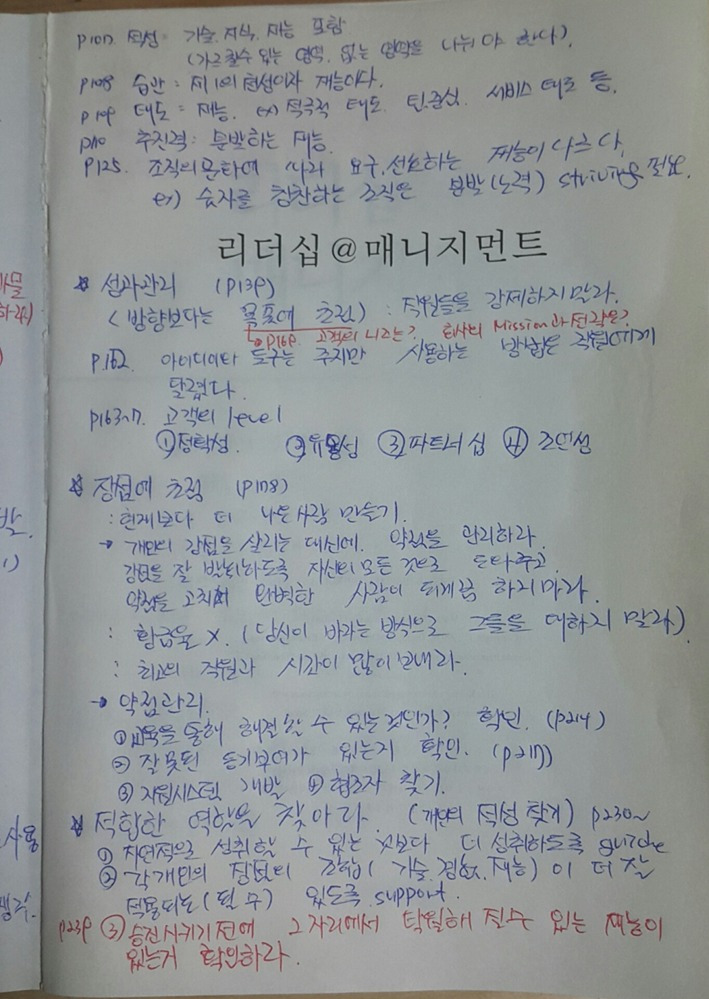 P107. 적성 : 기술, 지식, 재능 포함
(가르칠수 있는 영역, 없는 영역을 나눠야 한다).
P108 습관 : 제1의 천성이자 재능이다.
P109 태도 = 재능. ex) 적극적 태도, 서비스 태도 등.
P110 추진력 : 분발하는 재능.
P125. 조직의 문화에 따라 요구, 선호하는 재능이 다르다.
ex) 숫자를 칭찬하는 조직은 분발(노력) striving 필요.
리더십@매니지먼트
성과관리 (P139)
< 방향보다는 목표에 초점) : 직원들을 강제하지말라.
P169. 고객의 니즈는? 회사의 Mission과 전략은?
P.162. 아이디어와 도구는 주지만 사용하는 방법은 직원에게
달렸다.
P163~7. 고객의 level
① 정확성. ② 유용성 ③ 파트너십 ④ 조언성
장점에 초점 (P178)
: 현재보다 더 나은사람 만들기.
→ 개인의 강점을 살리는 대신에. 약점을 관리하라.
강점을 잘 발휘하도록 자신의 모든 것으로 도와주고
약점을 고치며 완벽한 사람이 되게끔 하지마라.
: 황금율 X. (당신이 바라는 방식으로 그들을 대하지 말라)
: 최고의 직원과 시간이 많이 보내라.
→ 약점관리.
① 교육을 통해 해결할 수 있는것인가? 확인. (P214)
② 잘못된 동기부여가 있는지 확인. (P217)
③ 지원시스템 개발 ④ 협조자 찾기.
적합한 역할을 찾아라. (개인의 적성 찾기) P230~
① 자연적으로 성취할 수 있는 것보다 더 성취하도록 guide
② 각개인의 장점의 조합( 기술, 경험, 재능) 이 더 잘
적용되는(될 수) 있도록 support.
P239 ③ 승진시키기 전에 그 자리에서 탁월해 질수 있는 재능이
있는거 확인하라.